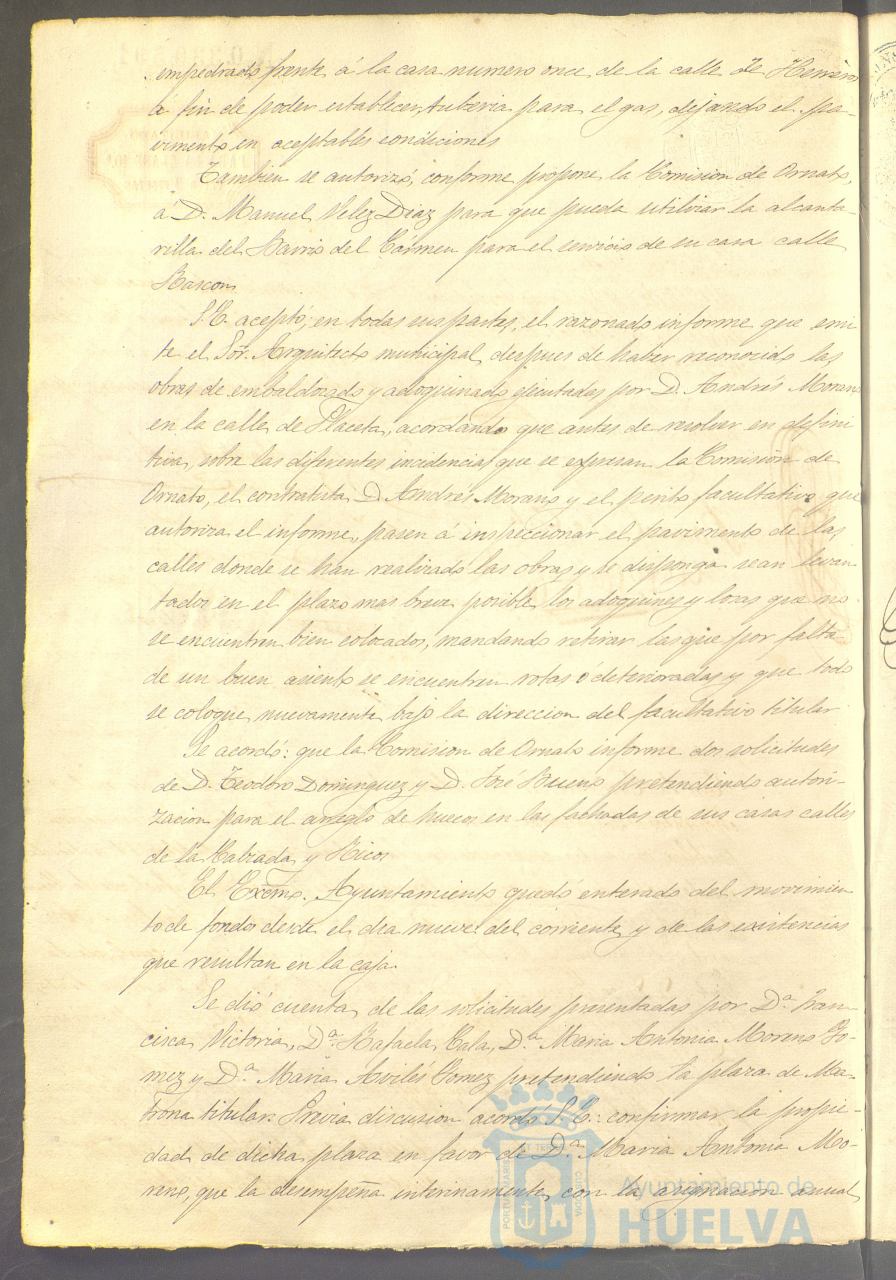 empedrado frente á la casa numero once de la calle de Herrero
a fin de poder establecer, tuberia para el gas, dejando el pa-
vimento en aceptables condiciones
Tambien se autorizó, conforme propone la Comision de Ornato,
á D. Manuel Velez Diaz para que pueda utilizar la alcanta-
rilla del Barrio del Cármen para el servicio de su casa calle
Rascon
S.E. aceptó, en todas sus partes, el razonado informe que emi
te el Sor. Arquitecto municipal, despues de haber reconocido las
obras de embaldozado y adoquinado ejecutadas por D. Andrés Moreno
en la calle de Placeta, acordando que antes de resolver en defini
tiva, sobre las diferentes incidencias que se expresan la Comision de
Ornato, el contratista D. Andrés Moreno y el perito facultativo que
autoriza el informe, pasen á inspeccionar el pavimento de las
calles donde se han realizado las obras y se disponga sean levan
tados en el plazo mas breve posible, los adoquines y lozas que no
se encuentren bien colocados, mandando retirar las que por falta
de un buen asiento se encuentren rotas ó deterioradas y que todo
se coloque nuevamente bajo la direccion del facultativo titular
Se acordó: que la Comision de Ornato informe dos solicitudes
de D. Teodoro Dominguez y D. José Bueno pretendiendo autori-
zacion para el arreglo de huecos en las fachadas de sus casas calles
de la Calzada y Ricos
El Excmo. Ayuntamiento quedó enterado del movimien
to de fondos desde el dia nueve del corriente y de las existencias
que resultan en la caja.
Se dió cuenta de las solicitudes presentadas por Dª. Fran-
cisca Victoria, Dª. Rafaela Cala, Dª. Maria Antonia Moreno Go-
mez y Dª. Maria Avilés Gomez pretendiendo la plaza de Ma-
trona titular. Previa discusion acordó S.E.: confirmar la propie-
dad de dicha plaza en favor de Dª. Maria Antonia Mo-
reno, que la desempeña interinamente con la asignacion anual
Ayuntamiento de
HUELVA